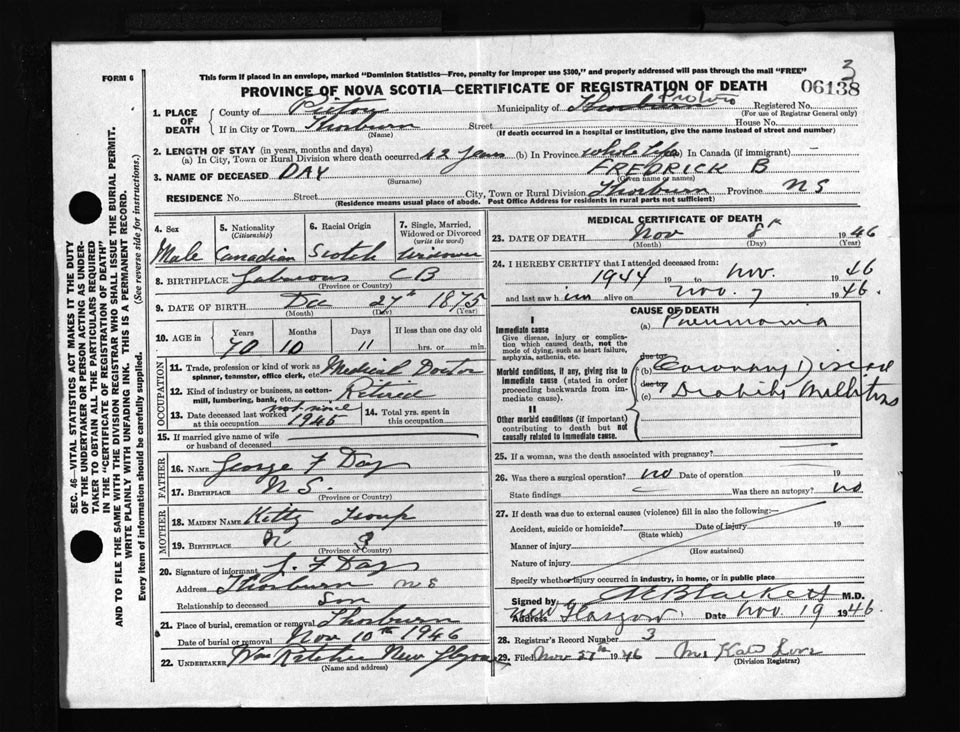 3
FORM 6
This form if placed in an envelope, marked "Dominion Statistics—Free, penalty for improper use $300," and properly addressed will pass through the mail "FREE"
PROVINCE OF NOVA SCOTIA—CERTIFICATE OF REGISTRATION OF DEATH
06138
1. PLACE OF DEATH
County of Pictou Municipality of Thorburn Registered No.
(For use of Registrar General only)
If in City or Town Thorburn Street House No.
(Name) (If death occurred in a hospital or institution, give the name instead of street and number)
2. LENGTH OF STAY (in years, months and days)
(a) In City, Town or Rural Division where death occurred 42 years (b) In Province whole life (c) In Canada (if immigrant) —
3. NAME OF DECEASED DAY FREDRICK B
(Surname) (Given name or names)
RESIDENCE No. Street City, Town or Rural Division Thorburn Province NS
(Residence means usual place of abode. Post Office Address for residents in rural parts not sufficient)
4. Sex 5. Nationality (Citizenship) 6. Racial Origin 7. Single, Married, Widowed or Divorced (write the word)
Male Canadian Scotch Widower
8. BIRTHPLACE Gabarous CB
(Province or Country)
9. DATE OF BIRTH Dec 27th 1875
(Month) (Day) (Year)
10. AGE Years Months Days If less than one day old
70 10 11 hrs. or min.
OCCUPATION
11. Trade, profession or kind of work as spinner, teamster, office clerk, etc. Medical Doctor
12. Kind of industry or business, as cotton-mill, lumbering, bank, etc. Retired
13. Date deceased last worked at this occupation not since 1945
14. Total yrs. spent in this occupation
15. If married give name of wife or husband of deceased
FATHER
16. NAME George F Day
17. BIRTHPLACE N S.
(Province or Country)
MOTHER
18. MAIDEN NAME Kitty Troup
19. BIRTHPLACE N S
(Province or Country)
20. Signature of informant J. F Day
Address Thorburn NS
Relationship to deceased Son
21. Place of burial, cremation or removal Thorburn
Date of burial or removal Nov 10th 1946
22. UNDERTAKER Wm New Glasgow
(Name and address)
MEDICAL CERTIFICATE OF DEATH
23. DATE OF DEATH Nov 8th 1946
(Month) (Day) (Year)
24. I HEREBY CERTIFY that I attended deceased from:
1944 19 to nov. 1946
and last saw him alive on nov. 7 1946.
CAUSE OF DEATH
I
Immediate cause (a) Pneumonia
Give disease, injury or complication which caused death, not the mode of dying, such as heart failure, asphyxia, asthenia, etc.
due to
Morbid conditions, if any, giving rise to immediate cause (stated in order proceeding backwards from immediate cause). (b) Coronary Disease
due to
(c) Diabetes Mellitus
II
Other morbid conditions (if important) contributing to death but not causally related to immediate cause.
25. If a woman, was the death associated with pregnancy?
26. Was there a surgical operation? no Date of operation 19
State findings Was there an autopsy? no
27. If death was due to external causes (violence) fill in also the following:—
Accident, suicide or homicide? Date of injury 19
(State which)
Manner of injury
(How sustained)
Nature of injury
Specify whether injury occurred in industry, in home, or in public place
Signed by Blackett M.D.
Address New Glasgow Date Nov. 19 1946.
28. Registrar's Record Number 3
29. Filed Nov 27th 1946 Mrs Kate
(Division Registrar)
SEC. 46—VITAL STATISTICS ACT MAKES IT THE DUTY
OF THE UNDERTAKER OR PERSON ACTING AS UNDER-
TAKER TO OBTAIN ALL THE PARTICULARS REQUIRED
IN THE "CERTIFICATE OF REGISTRATION OF DEATH"
AND TO FILE THE SAME WITH THE DIVISION REGISTRAR WHO SHALL ISSUE THE BURIAL PERMIT.
WRITE PLAINLY WITH UNFADING INK. THIS IS A PERMANENT RECORD.
Every item of information should be carefully supplied. (See reverse side for instructions.)